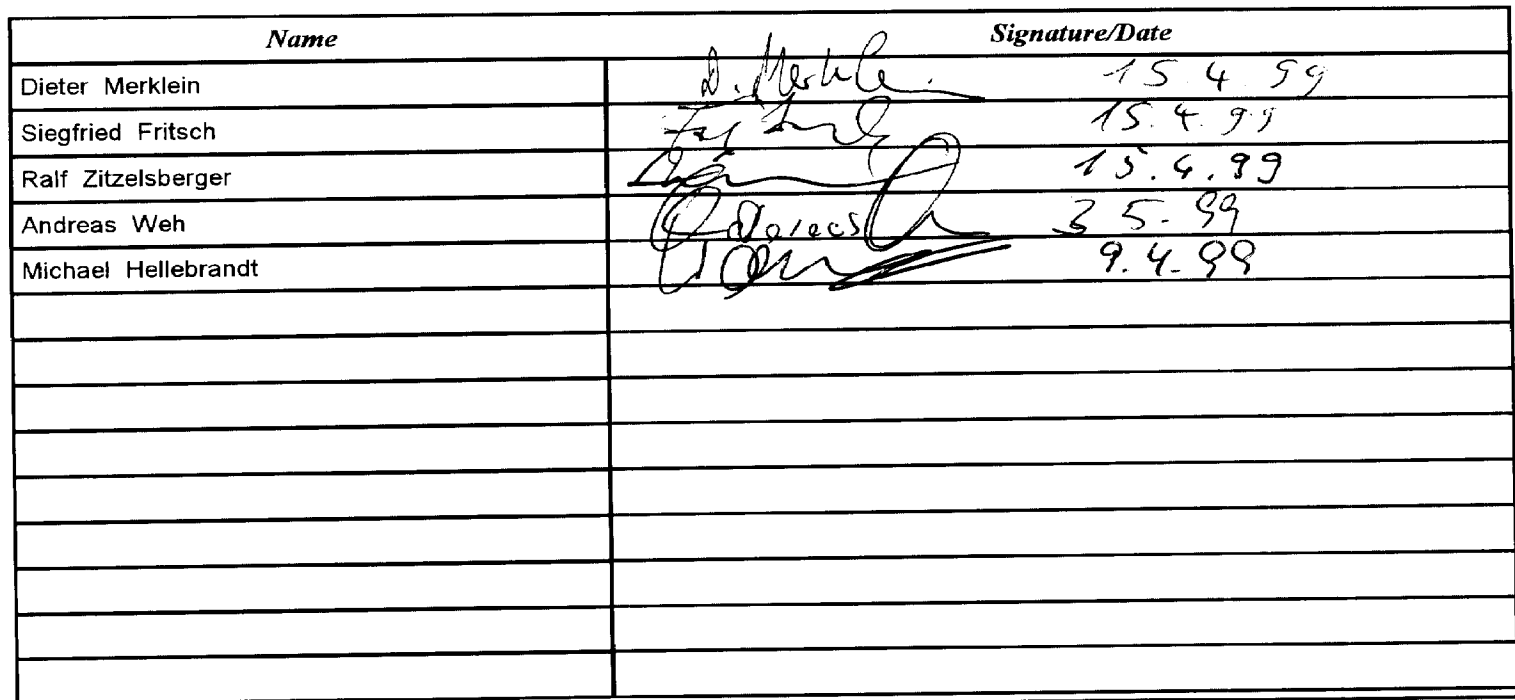 Name Signature/Date
Dieter Merklein D. Merklein 15.4.99
Siegfried Fritsch 15.4.99
Ralf Zitzelsberger 15.4.99
Andreas Weh Andreas 3 5. 99
Michael Hellebrandt 9.4.99